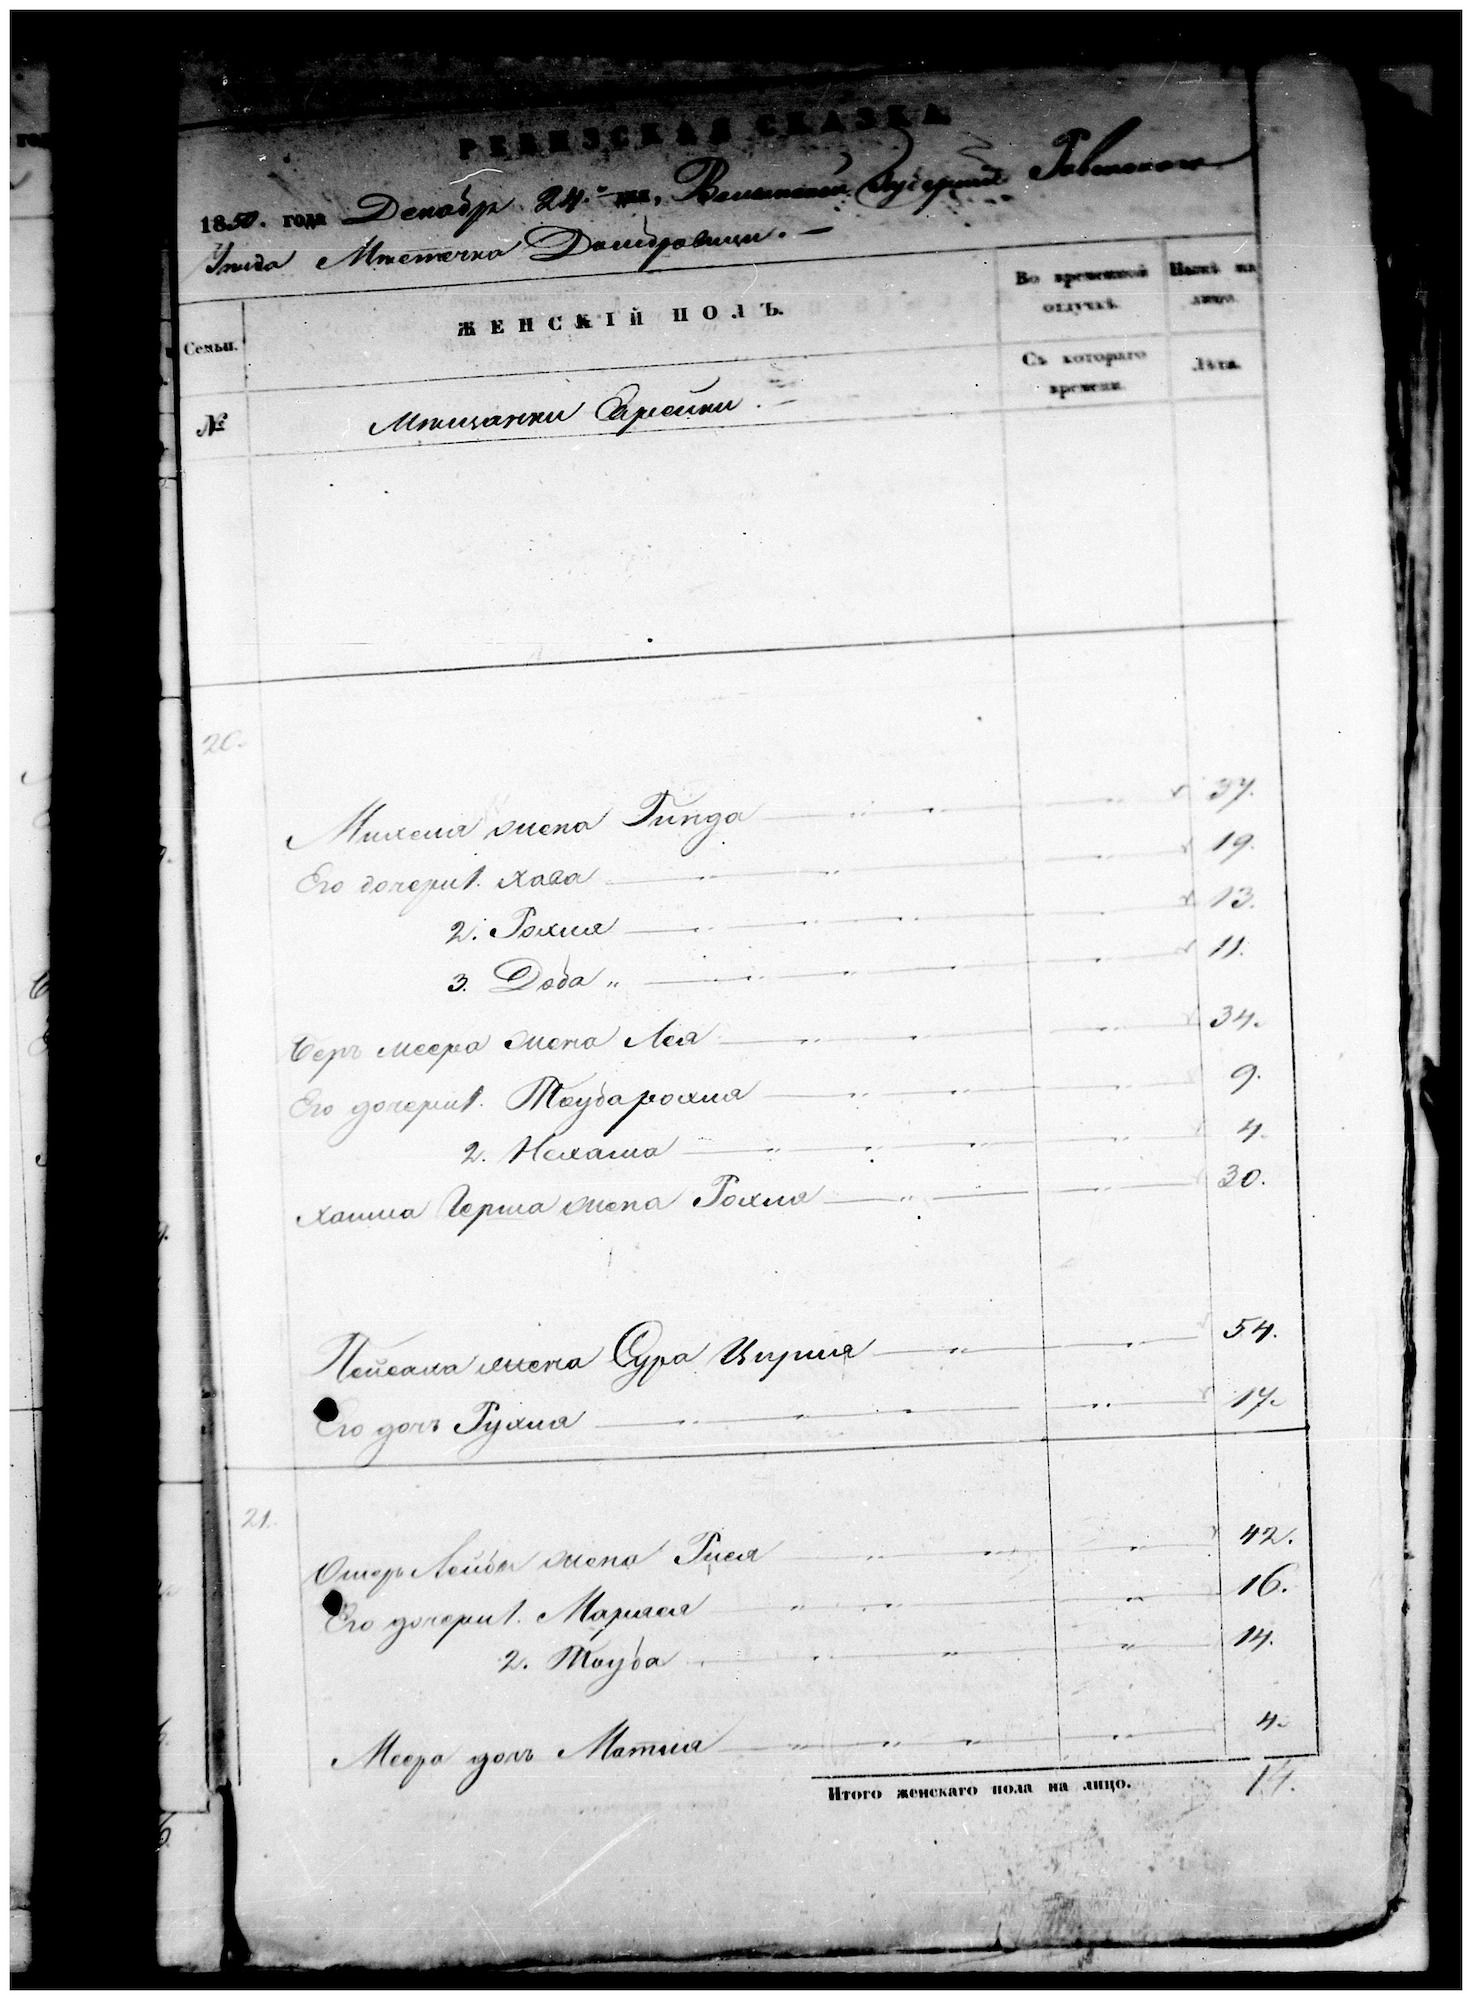 РЕВИЗСКАЯ СКАЗКА
1850. года Декабр 24.го дня, Волынской Губерніи Ровенскаго
Уезда Местечка Домбровицы. —
Семьи.
ЖЕНСКІЙ ПОЛЪ.
Во временной отлучкѣ.
Нынѣ на лицо.
Съ котораго времени.
Лѣта.
№
Мещанки Еврейки. —
20.
Михеля жена Гинда 37.
Его дочери 1. Хава 19.
2. Рохля 13.
3. Доба „ 11.
Беръ Меера жена Лея 34.
Его дочери 1. Таубарохля 9.
2. Нехама 4.
Хаима Герша жена Рохля 30.
Пейсаха жена Сура Цирля 54.
Его дочь Рухля 17.
21.
Ошеръ Лейбы жена Рися 42.
Его дочери 1. Маряся 16.
2. Тауба 14.
Меера дочь Матля 4.
Итого женскаго пола на лицо. 14.